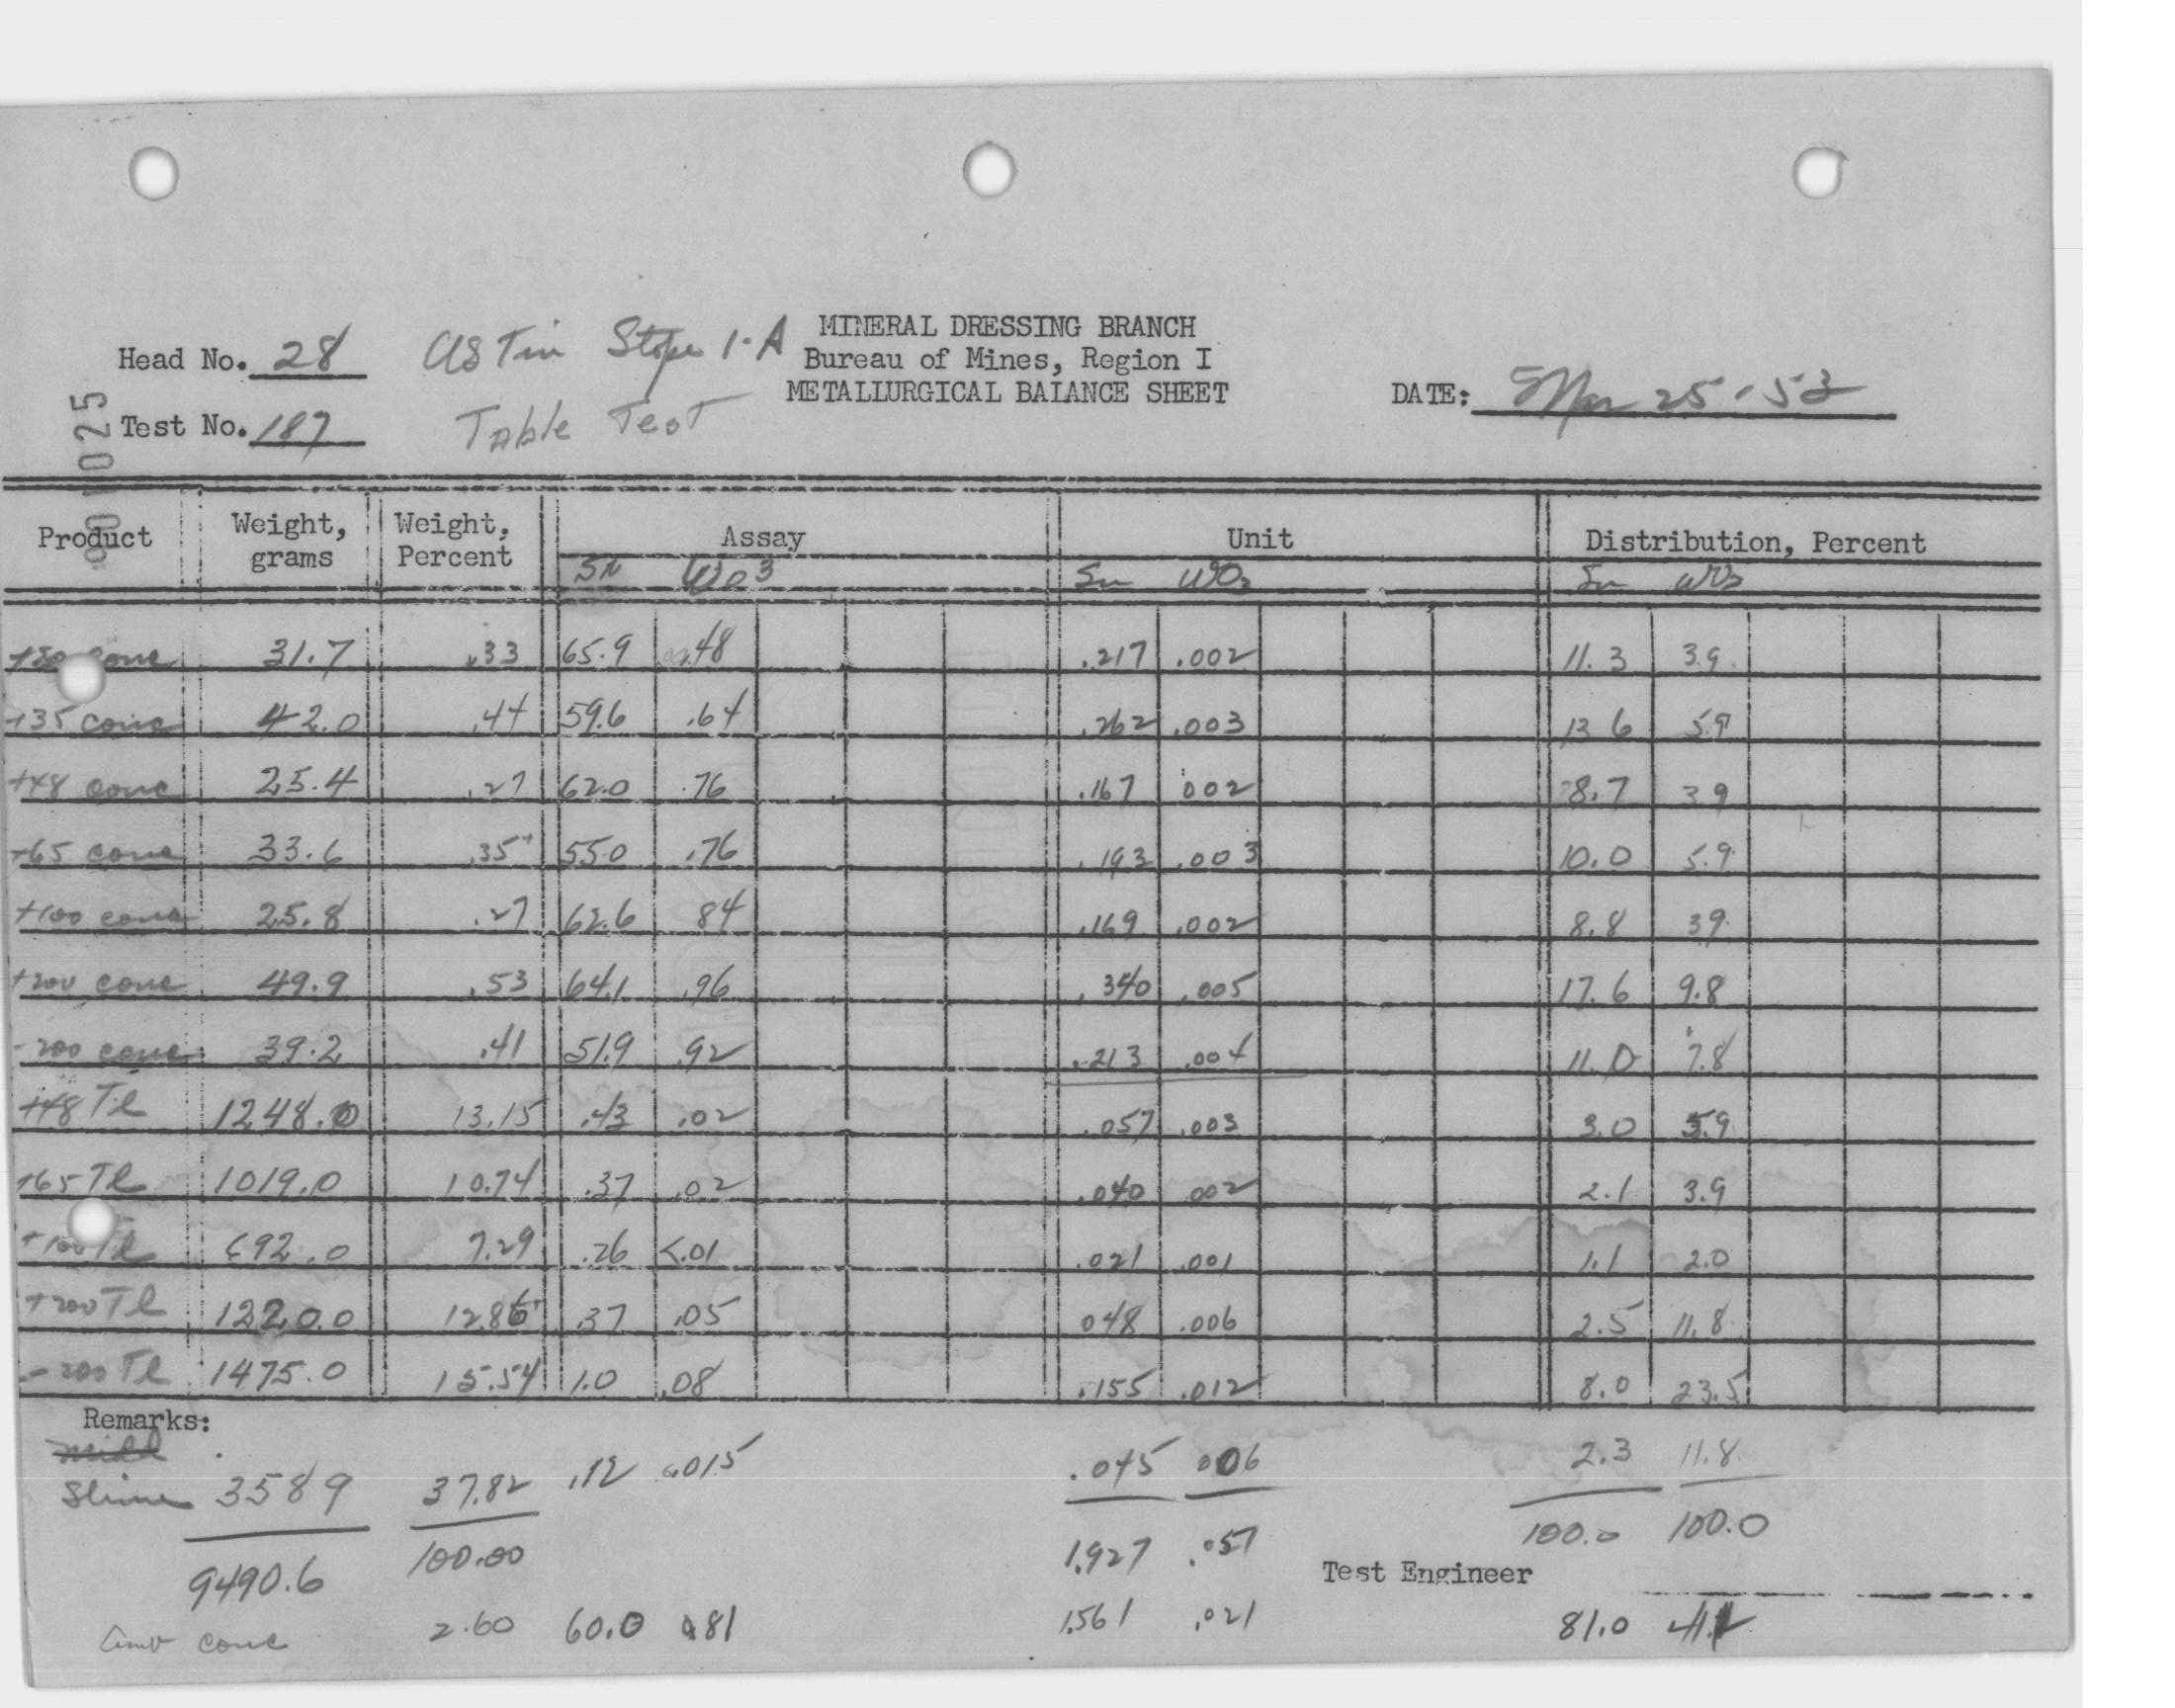 MINERAL DRESSING BRANCH
Head No. 28 US Tin Stope 1-A Bureau of Mines, Region I
METALLURGICAL BALANCE SHEET DATE: Mar 25-53
Test No. 187 Table Test
025
Product Weight, grams Weight, Percent Assay Unit Distribution, Percent
Sn WO3 Sn WO3 Sn WO3
conc 31.7 .33 65.9 .48 .217 .002 11.3 3.9
+35 conc 42.0 .44 59.6 .64 .262 .003 13.6 5.9
+48 conc 25.4 .27 62.0 .76 .167 .002 8.7 3.9
+65 conc 33.6 .35 55.0 .76 .193 .003 10.0 5.9
+100 conc 25.8 .27 62.6 .84 .169 .002 8.8 3.9
+200 conc 49.9 .53 64.1 .96 .340 .005 17.6 9.8
-200 conc 39.2 .41 51.9 .92 .213 .004 11.0 7.8
+48 Tl 1248.0 13.15 .43 .02 .057 .003 3.0 5.9
+65 Tl 1019.0 10.74 .37 .02 .040 .002 2.1 3.9
+100 Tl 692.0 7.29 .26 <.01 .021 .001 1.1 2.0
+200 Tl 1220.0 12.86 .37 .05 .048 .006 2.5 11.8
-200 Tl 1475.0 15.54 1.0 .08 .155 .012 8.0 23.5
Remarks:
Slime 3589 37.82 .12 .015 .045 .006 2.3 11.8
9490.6 100.00 1.927 .051 100.0 100.0
Test Engineer
conc 2.60 60.0 .81 1.561 .021 81.0 41.2